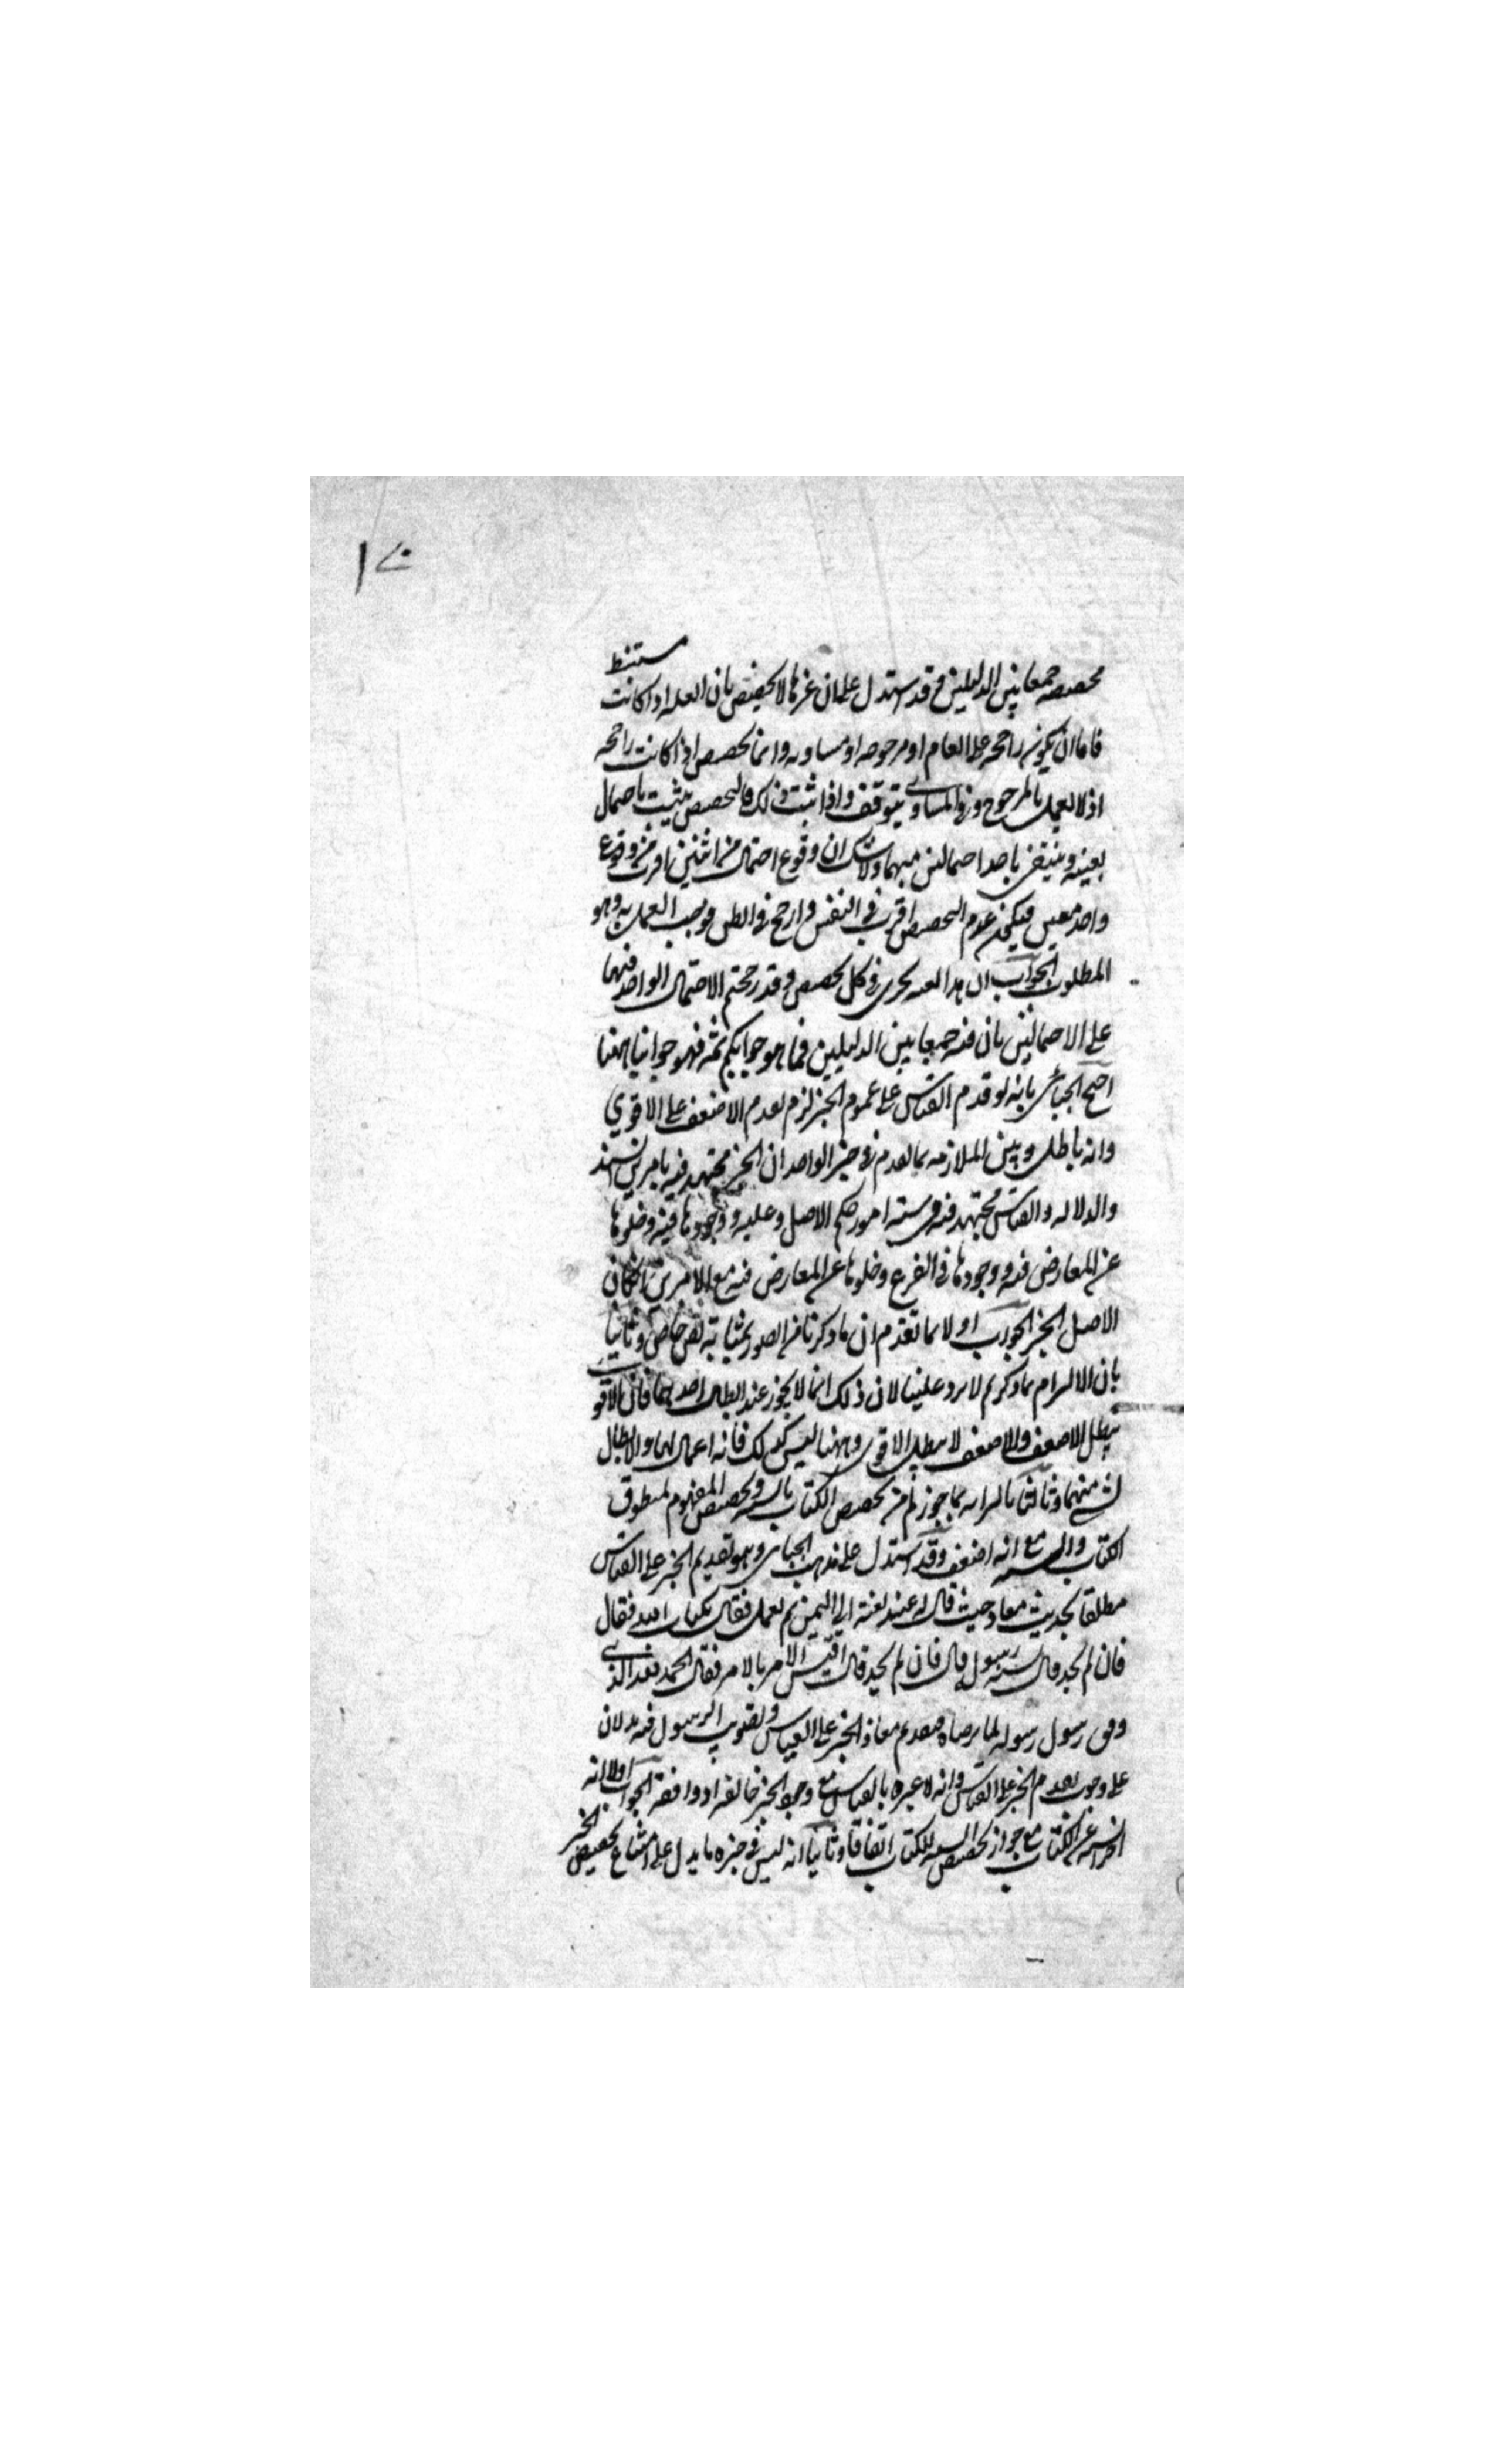 مخصصه جمعا بين الدليلين وقد استدل على ان غيرها لا يخصص بان العله اذا كانت مستنبط
فاما ان يكون راجحه على العام او مرجوحه او مساويه وانما يخصص اذا كانت راجحه
اذ لا يعمل بالمرجوح وفي المساوي يتوقف واذا ثبت ذلك فالتخصيص يثبت باحتمال
بعينه وينتفي باحد احتمالين مبهما ولا شك ان وقوع احتمال من اثنين اقرب من وقوع
واحد معين فيكون عدم التخصيص اقرب في النفس وارجح في الظن فوجب العمل به وهو
المطلوب الجواب ان هذا بعينه يجري في كل تخصيص وقد رجحتم الاحتمال الواحد فيها
على الاحتمالين بان فيه جمعا بين الدليلين فما هو جوابكم ثمه فهو جوابنا ههنا
احتج الجبائي بانه لو قدم القياس على عموم الخبر لزم تقدم الاضعف على الاقوي
وانه باطل وبين الملازمه بما تقدم في خبر الواحد ان الخبر مجتهد فيه بامرين السند
والدلاله والقياس مجتهد فيه في سته امور حكم الاصل وعليه ووجودها فيه وخلوها
عن المعارض فيه ووجودها في الفرع وخلوها عن المعارض فيه مع الامرين ان كان
الاصل الخبر الجواب اولا بما تقدم ان ما ذكرنا من الصور بمثابة نص خاص وثانيا
بان الالزام بما ذكرتم لا يرد علينا لان ذلك انما لا يجوز عند ابطال احدهما فان الاقوي
يبطل الاضعف والاضعف لا يبطل الاقوي وههنا ليس كذلك فانه اعمال لهما ولا ابطال
لشي منهما وثالثا بالزامه بما جوزتم من تخصيص الكتاب بالسنه وتخصيص المفهوم لمنطوق
الكتاب والسنه مع انه اضعف وقد استدل على مذهب الجبائي وهو تقديم الخبر على القياس
مطلقا بحديث معاذ حيث قال له عند بعثه الي اليمن بم تعمل فقال بكتاب الله فقال
فان لم تجد قال بسنه رسول قال فان لم تجد قال اقيس الامر بالامر فقال الحمد لله الذي
وفق رسول رسوله لما يرضاه فتقديم معاذ الخبر على القياس وتصويب الرسول فيه يدلان
على وجوب تقديم الخبر على القياس وانه لا عبره بالقياس مع وجود الخبر خالفه او وافقه الجواب اولا انه
اخر السنه عن الكتاب مع جواز تخصيص السنه للكتاب اتفاقا وثانيا انه ليس في خبره ما يدل على امتناع تخصيص الخبر